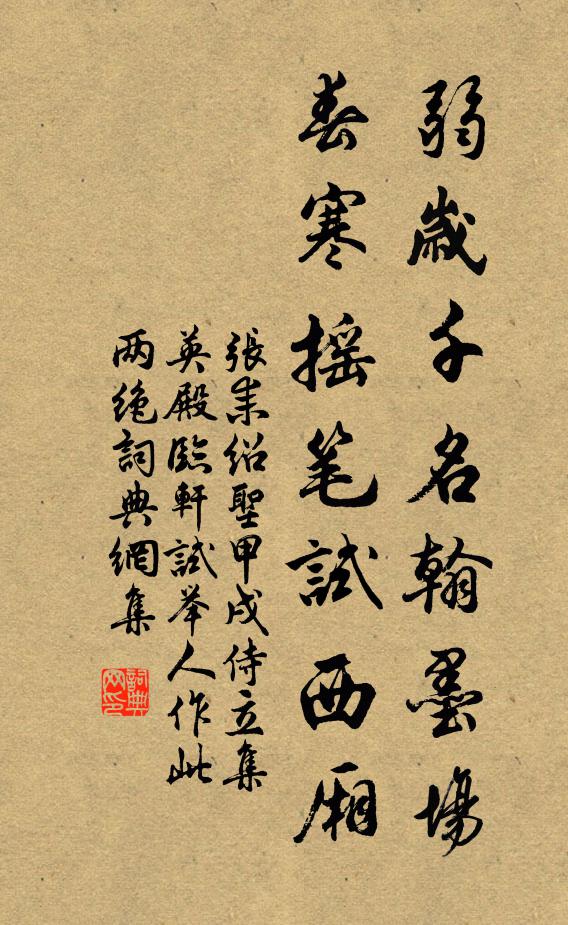 弱歲千名翰墨場
春寒搖笔試西厢
張耒绍聖甲戌侍立集
英殿臨軒試举人作此
两绝詞典網集
詞典网印